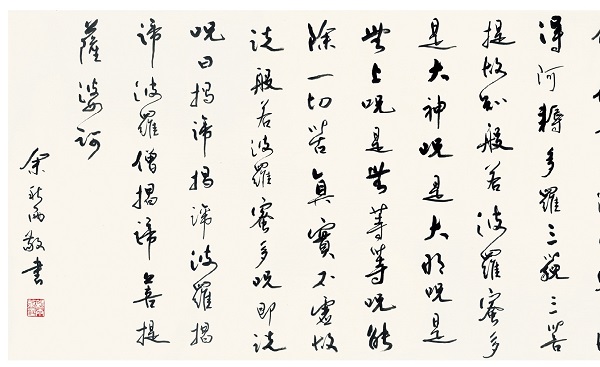 得阿耨多羅三藐三菩
提故知般若波羅蜜多
是大神呪是大明呪是
無上呪是無等等呪能
除一切苦真實不虛故
說般若波羅蜜多呪即說
呪曰揭諦揭諦波羅揭
諦波羅僧揭諦菩提
薩婆訶
余秋雨敬書